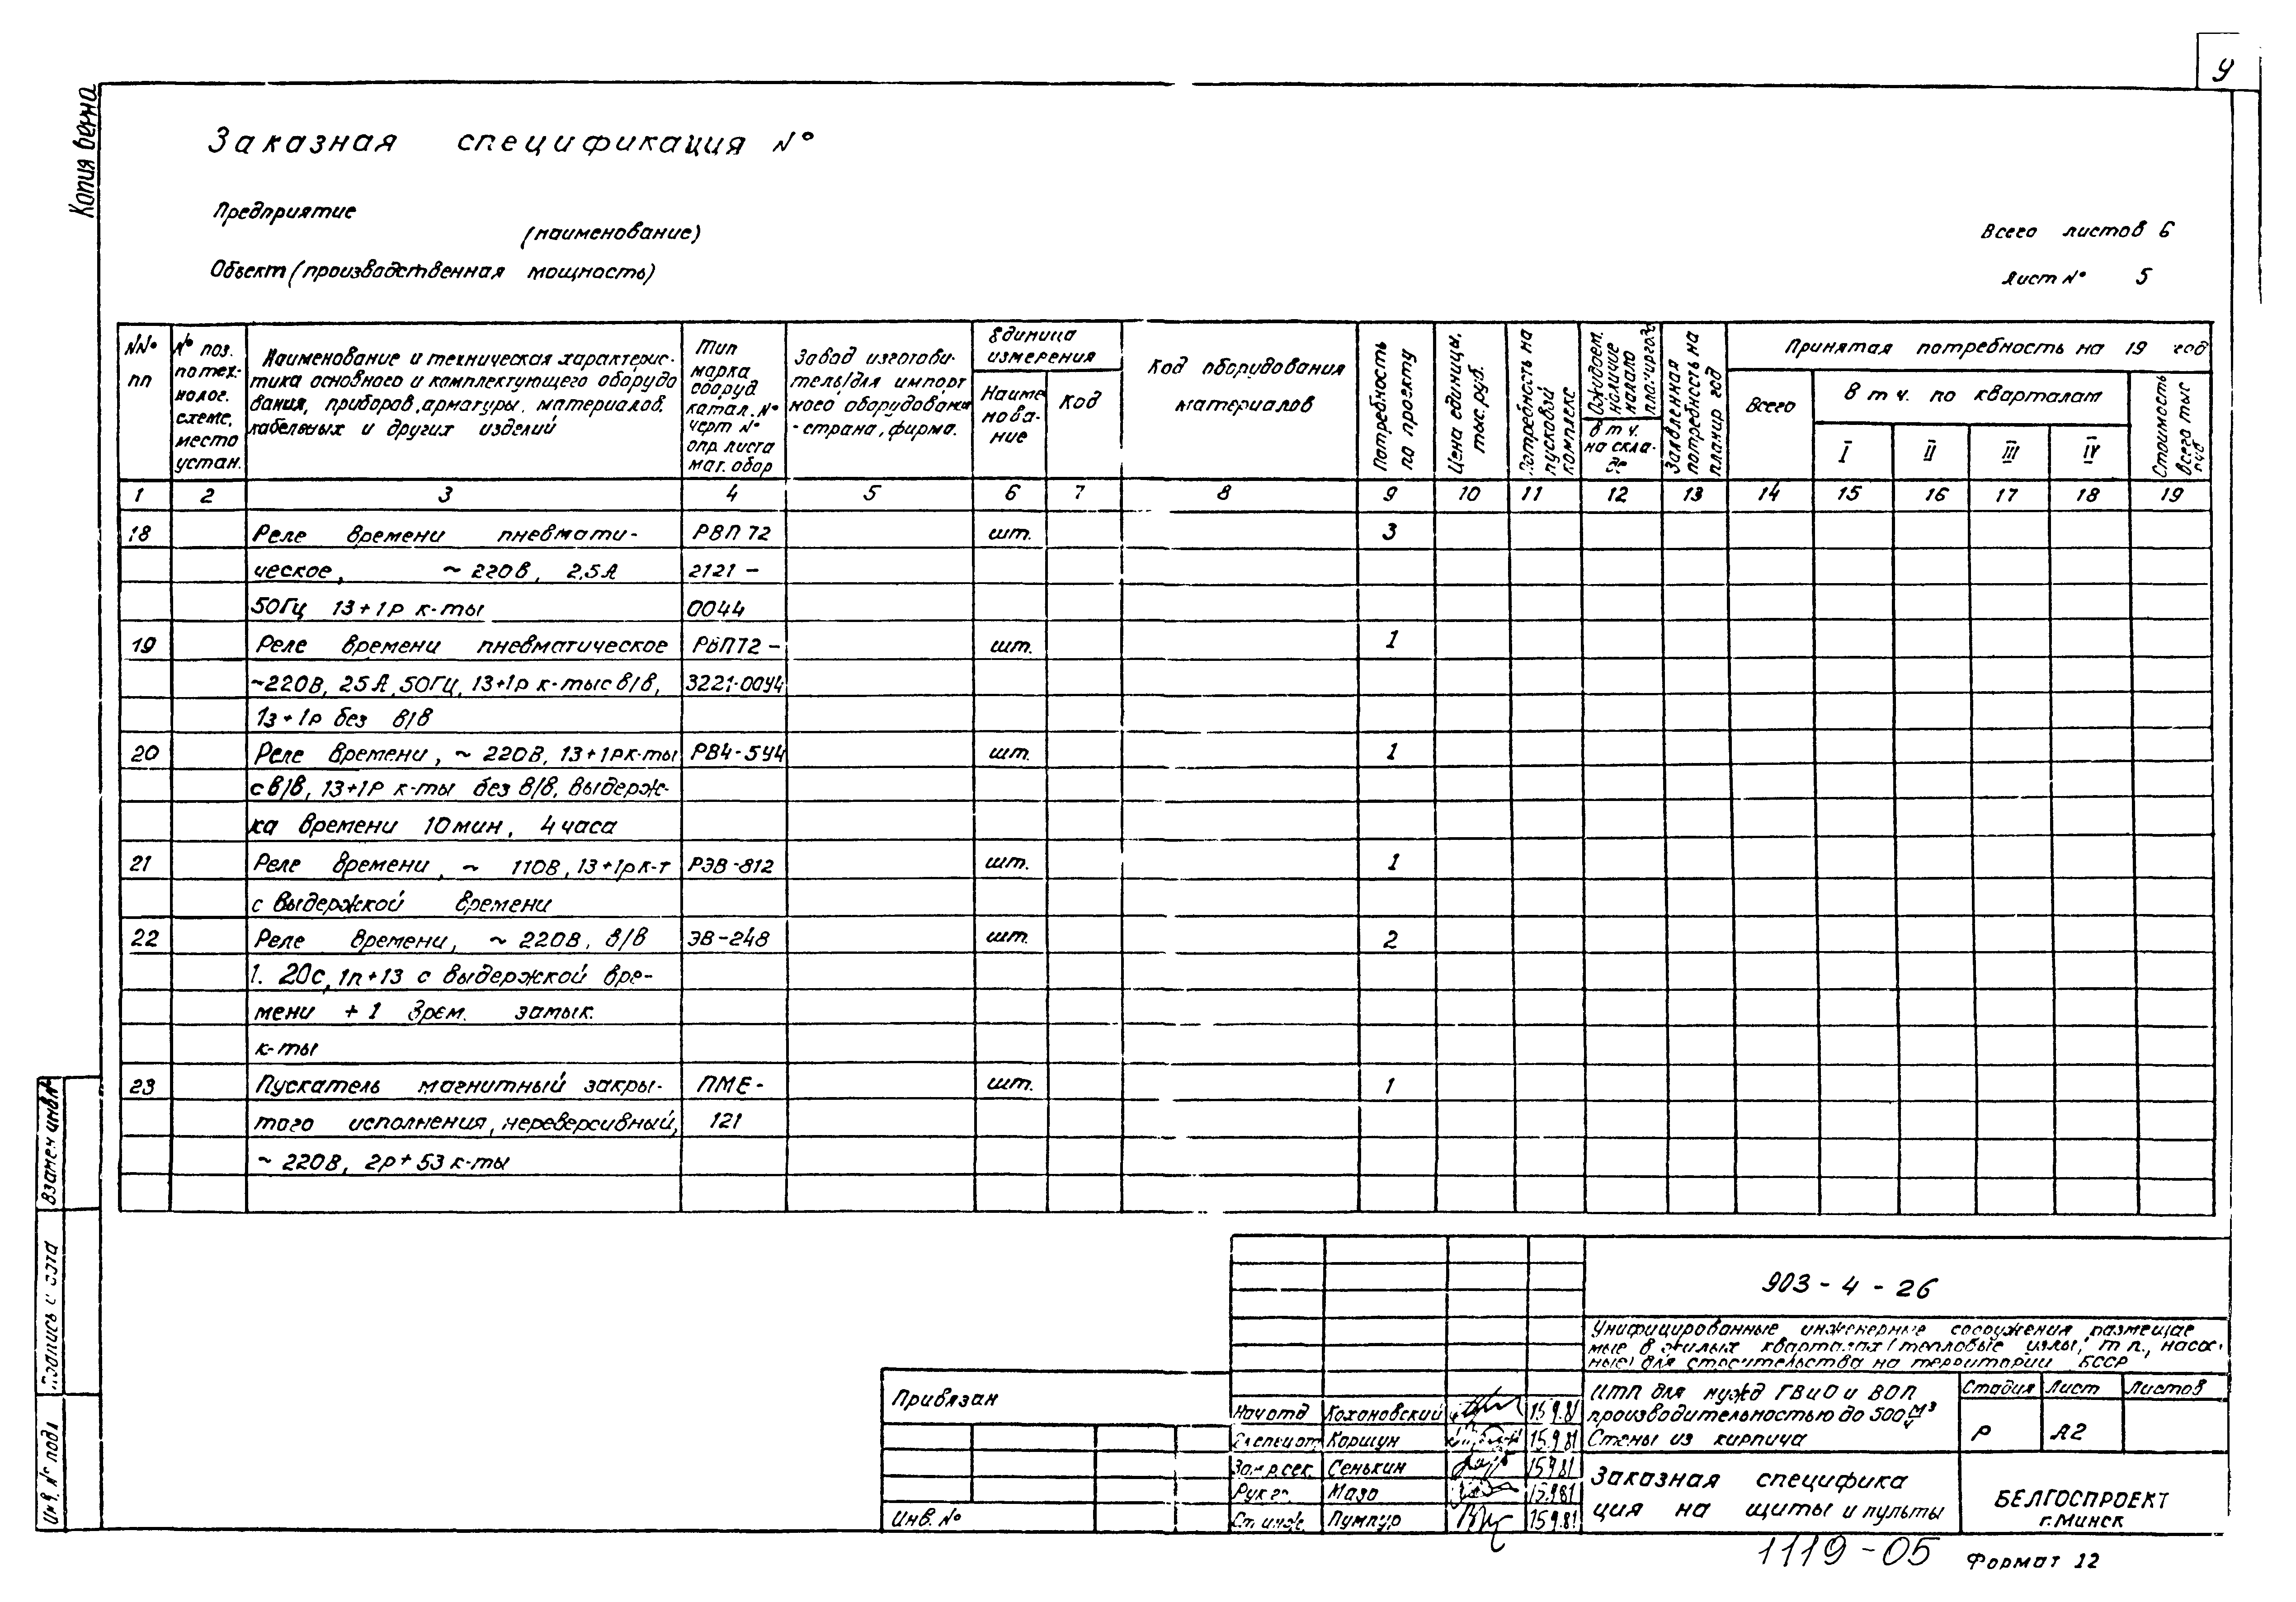 У
Копия верна
Заказная спецификация №
Предприятие
(наименование)
Объект (производственная мощность)
Всего листов 6
Лист № 5
№№ пп
№ поз. по тех-нолог. схеме, место устан.
Наименование и техническая характерис-
тика основного и комплектующего оборудо
вания, приборов, арматуры, материалов,
кабельных и других изделий
Тип марка оборуд катал. № черт № опр. листа мат. обор
Завод изготови-
тель/для импорт
ного оборудовани
- страна, фирма.
Единица измерения
Наиме нова- ние
Код
Код оборудования материалов
Потребность по проекту
Цена единицы, тыс. руб.
Потребность на пусковой комплекс
Ожидаем. наличие на нало
в т ч. на скла- де
Заявленная потребнсть на планир год
Принятая потребность на 19 год
Всего
В т ч. по кварталам
I II III IV
Стоимость всего тыс руб
1 2 3 4 5 6 7 8 9 10 11 12 13 14 15 16 17 18 19
18 Реле времени пневмати- РВП 72 шт. 3
ческое, ~ 220В, 2,5А 2121 -
50Гц 1з + 1р к-ты 0044
19 Реле времени пневматическое РВП72 - шт. 1
~220В, 25А, 50Гц, 1з+1р к-ты с в/в, 3221-00У4
1з + 1р без в/в
20 Реле времени, ~ 220В, 1з+1рк-ты РВ4-5У4 шт. 1
с в/в, 1з+1р к-ты без в/в, выдерж-
ка времени 10 мин, 4 часа
21 Реле времени, ~ 110В, 1з+1рк-т РЭВ-812 шт. 1
с выдержкой времени
22 Реле времени, ~ 220В, в/в ЭВ-248 шт. 2
1. 20с, 1п+1з с выдержкой вре-
мени + 1 врем. замык.
к-ты
23 Пускатель магнитный закры- ПМЕ- шт. 1
того исполнения, нереверсивный, 121
~ 220В, 2р+5з к-ты
Взамен инв.№
Подпись и дата
Инв. № подл
Привязан
Инв. №
Нач отд Кохановский 15.9.81
Гл спец от Коршун 15.9.81
Зам р.сек. Сенькин 15.9.81
Рук гр. Мазо 15.9.81
Ст. инж. Пумпур 15.9.81
903 - 4 - 26
Унифицированные инженерные сооружения размещае
мые в жилых кварталах (тепловые узлы, т п., насос-
ные) для строительства на территории БССР
ЦТП для нужд ГВ и О и ВОП
производительностью до 500 м³/ч
Стены из кирпича
Стадия Лист Листов
Р А2
Заказная специфика
ция на щиты и пульты
БЕЛГОСПРОЕКТ
г. Минск
1119-05
Формат 12